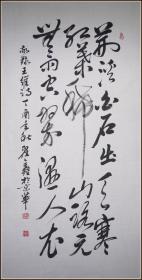 荆溪白石出天寒
红叶稀山路元
無雨空翠湿人衣
王維诗丁酉年秋於京華